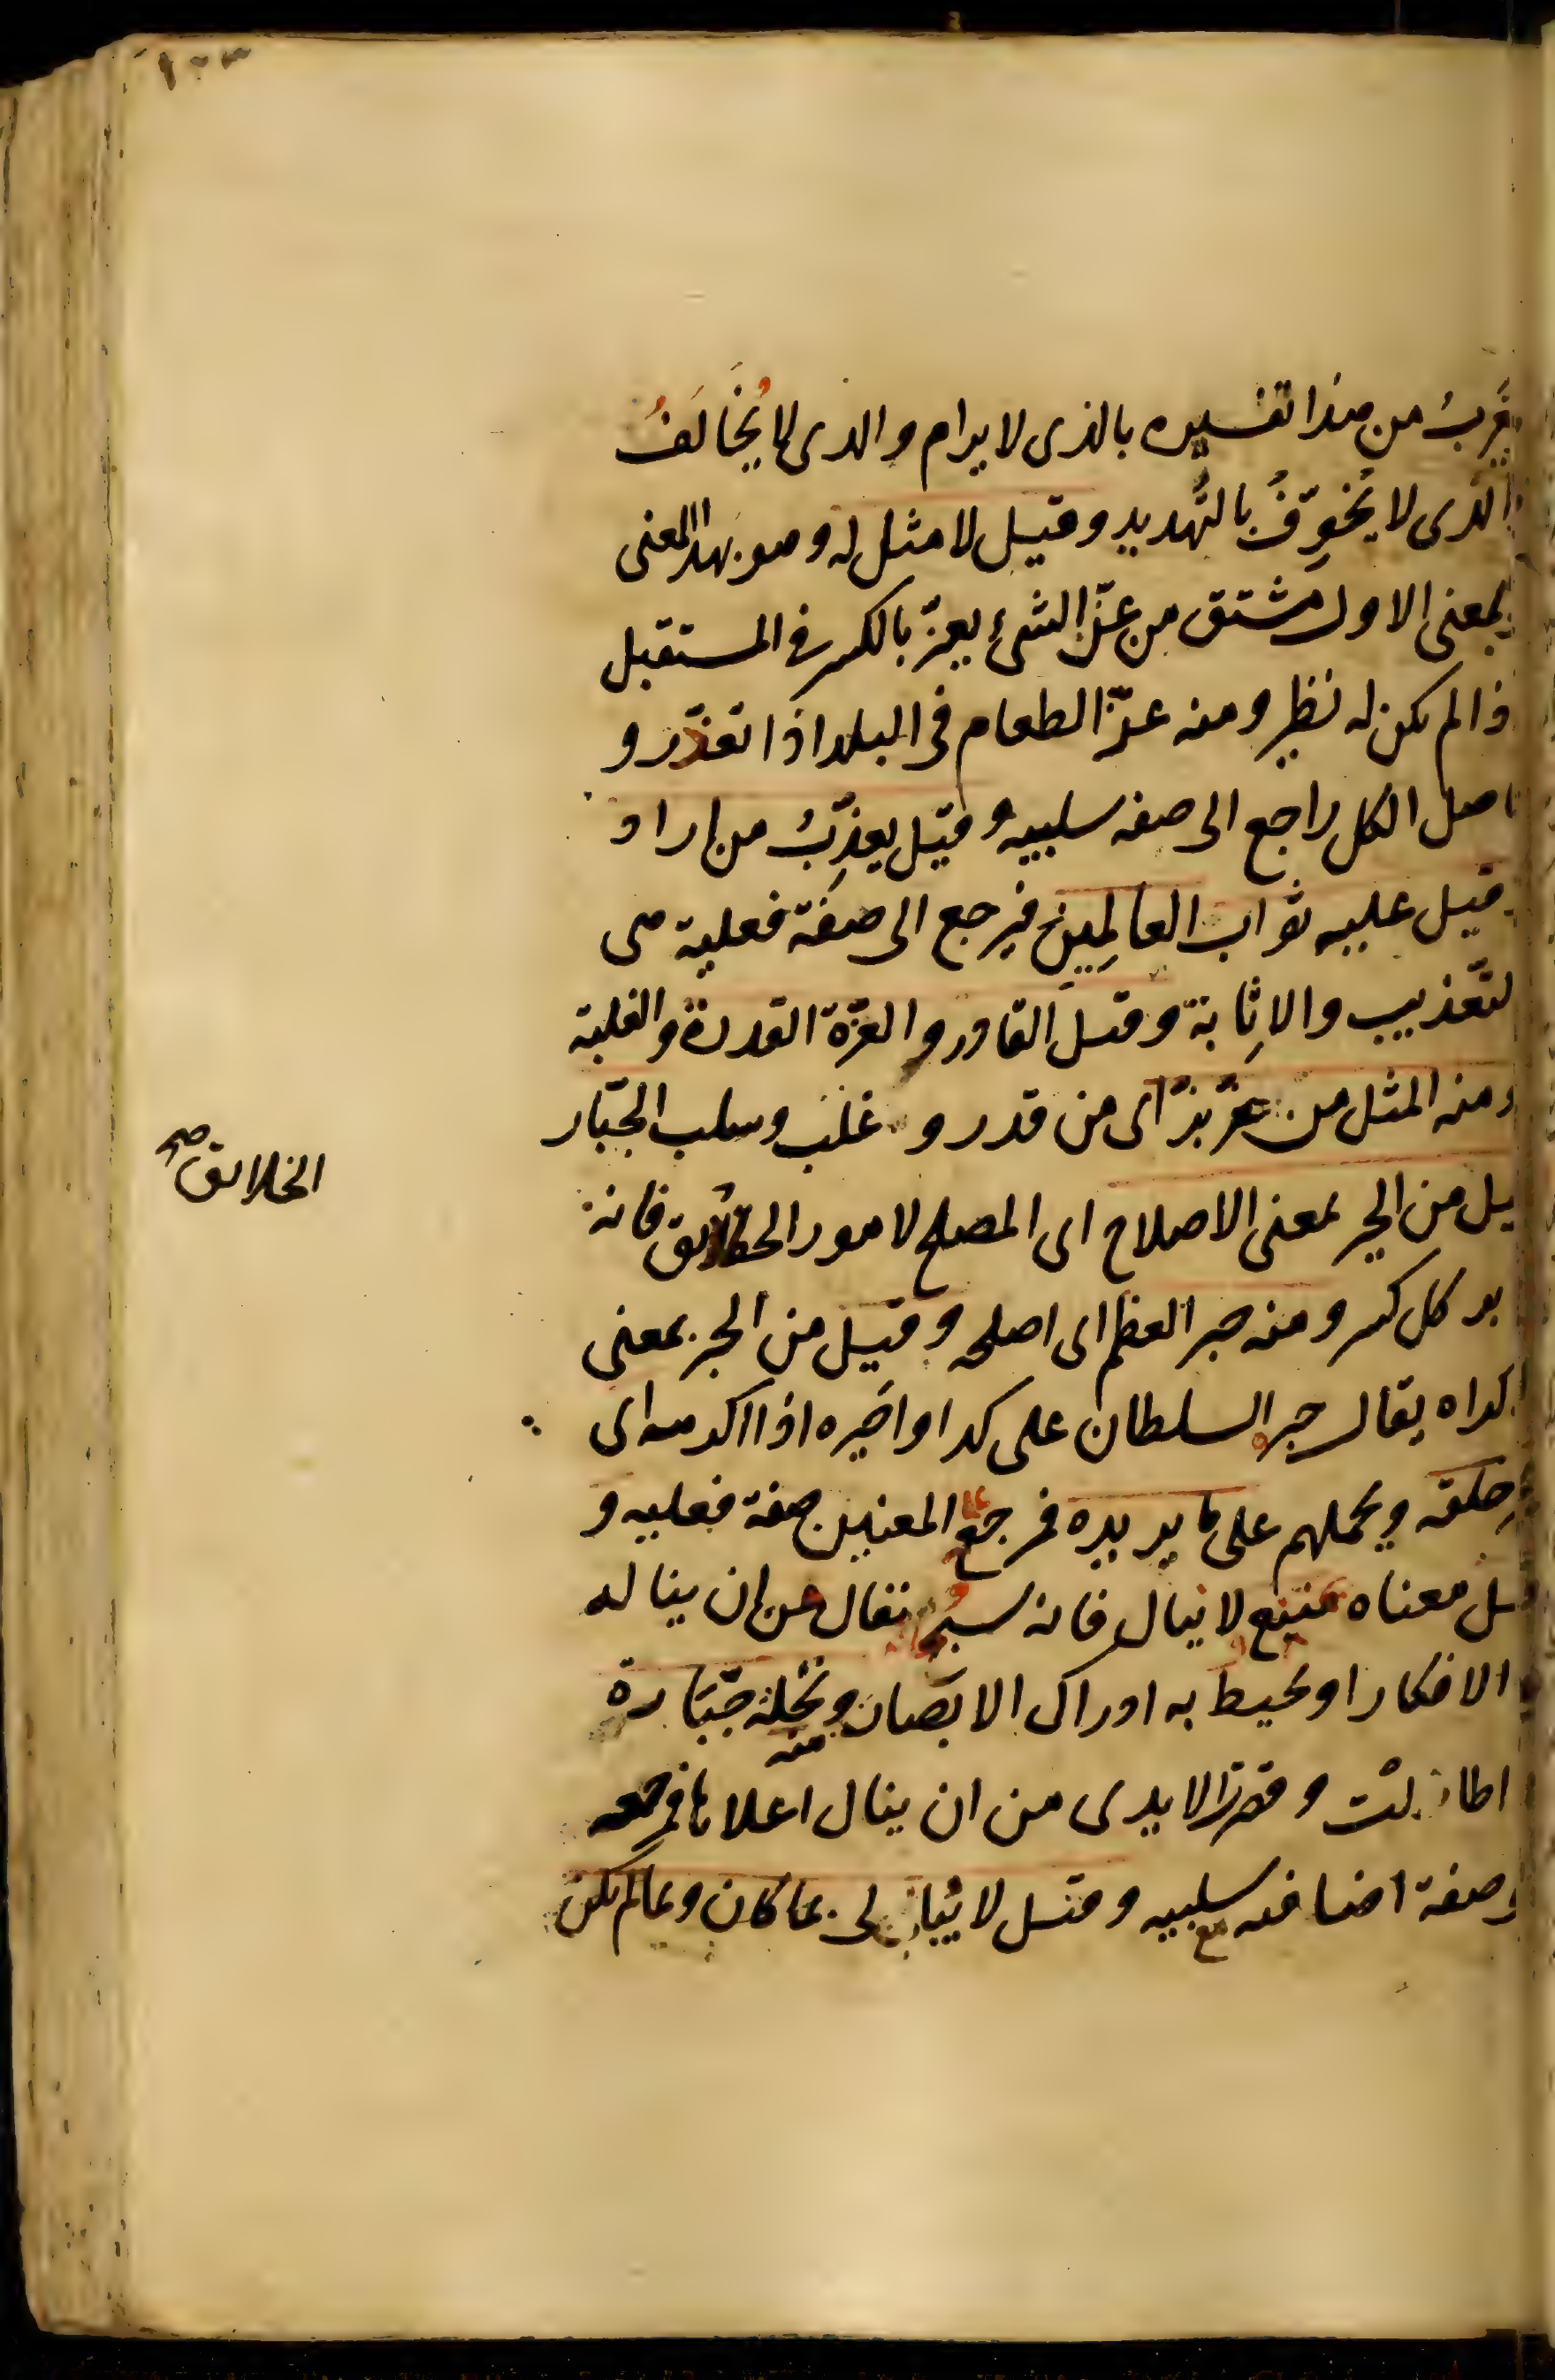 ١٠٣
يقرب من هذا تفسيره بالذى لا يرام والذى لا يُخَالَفُ
والذى لا يُخَوّفُ بالتهديد وقيل لا مثل له وهو بهذا المعنى
والمعنى الاول مشتق من عزّ الشئ يعزّ بالكسر فى المستقبل
اذا لم يكن له نظير ومنه عزّ الطعام فى البلد اذا تعذّر و
حاصل الكل راجع الى صفه سلبيه وقيل يعذِّبُ من اراد
وقيل عليه ثواب العالمِين فيرجع الى صفة فعلية هى
التعذيب والاِثابة وقيل القادر والعزّة القدرة والغلبة
ومنه المثل من عزّ بزّ اى من قدر و غلب وسلب الجبّار
قيل من الجبر بمعنى الاصلاح اى المصلح لامور فانه
الخلائق صح
جابر كل كسر ومنه جبر العظم اى اصلحه وقيل من الجبر بمعنى
الاكراه يقال جبر السلطان على كذا واجبره اذا اكرهه اى
يجبر خلقه ويحملهم على ما يريده فمرجع المعنيين صفة فعليه و
قيل معناه منيع لا ينال فانه تعالى من ان يناله
الافكار او يحيط به ادراك الابصار ومنه نخلة جبّارة
اذا طالت وقصرت الايدى من ان ينال اعلاها فمرجعه
صفة اضافيه مع سلبيه وقيل لا يبالى بما كان وبما لم يكن